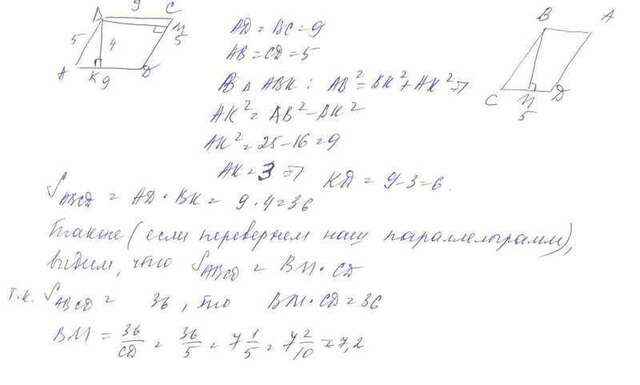 9
B C
5 4 M 5
A K 9 D
B A
C M D
5
AD = BC = 9
AB = CD = 5
В △ ABK : AB² = BK² + AK² ⇒
AK² = AB² - BK²
AK² = 25 - 16 = 9
AK = 3 ⇒ KD = 9 - 3 = 6.
S ABCD = AD · BK = 9 · 4 = 36
Также (если перевернем наш параллелограмм),
видим, что S ABCD = BM · CD
т.к. S ABCD = 36, то BM · CD = 36
BM = 36/CD = 36/5 = 7 1/5 = 7 2/10 = 7,2